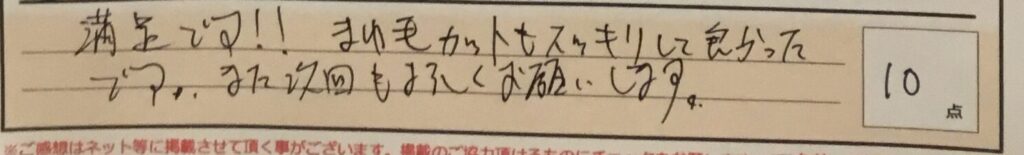 満足です!! まゆ毛カットもスッキリして良かった
です。また次回もよろしくお願いします。
10
点
※ご感想はネット等に掲載させて頂く事がございます。